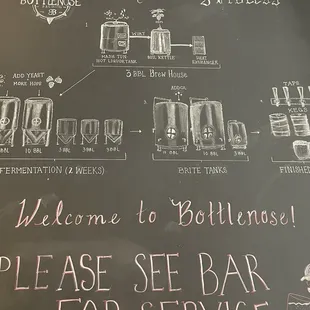 BOTTLENOSE
WORT
MASH TUN
HOT LIQUOR TANK
BOIL KETTLE
HEAT
EXCHANGER
3 BBL Brew House
ADD YEAST
MORE HOPS
10 BBL
3 BBL
3 BBL
3 BBL
10 BBL
3 BBL
TAPS
KEGS
FERMENTATION (2 WEEKS)
BRITE TANKS
FINISHED
Welcome to Bottlenose!
PLEASE SEE BAR
FOR SERVICE